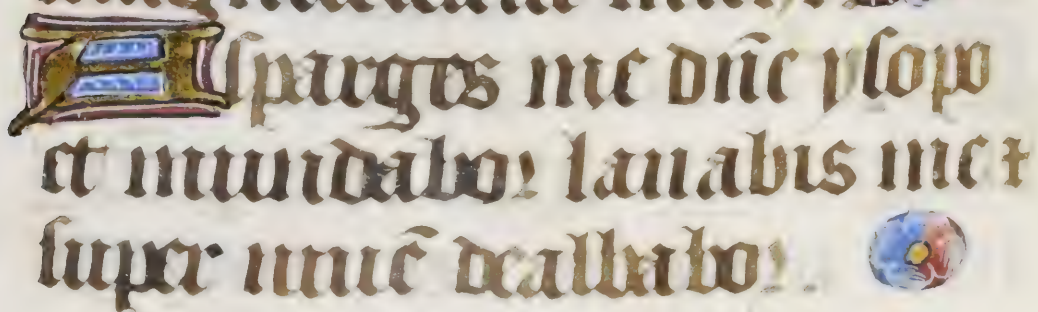 Asparges me dñe ysopo
et mundabor lauabis me et
super niuē dealbabor.